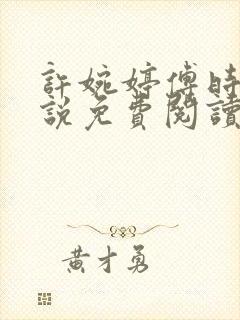 許婉婷傅時
說免費閱讀
黃才勇